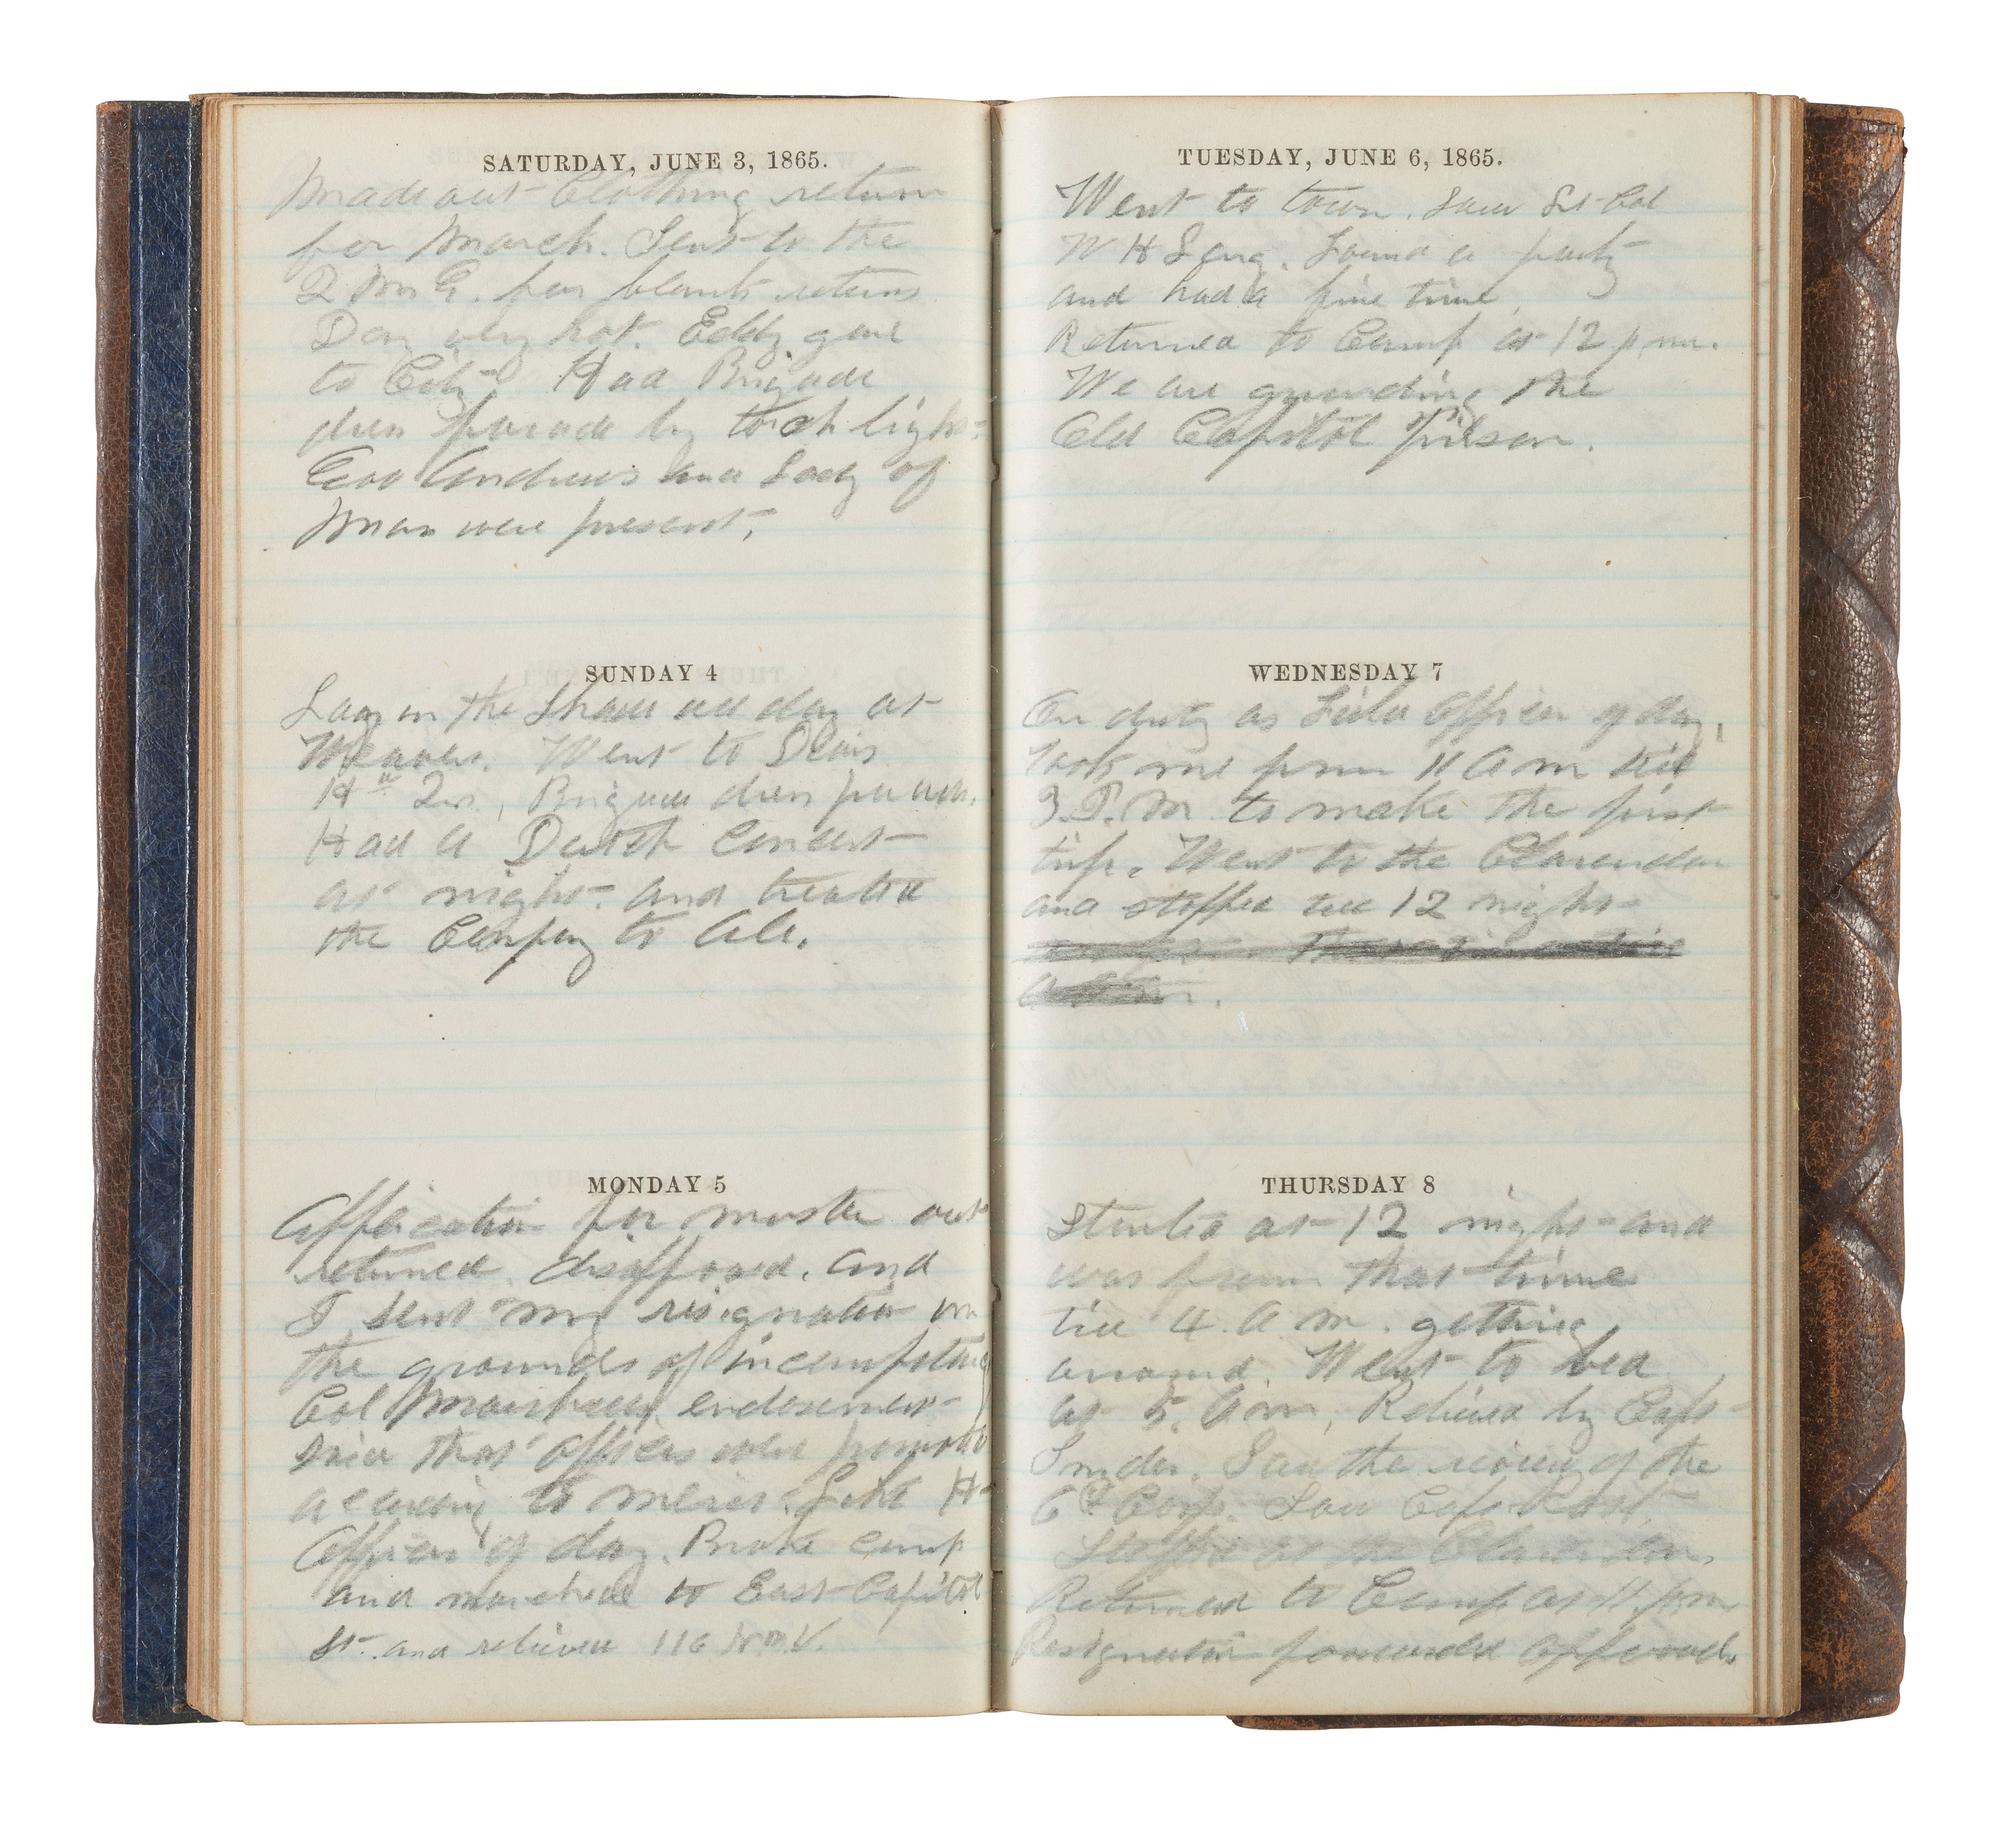 SATURDAY, JUNE 3, 1865.
Made out Clothing return
for March. Sent to the
Q M G. for blank returns
Day very hot. Eddy gone
to City. Had Brigade
dress parade by torch light
Gov Andrews and Lady of
Mass were present.
SUNDAY 4
Lay in the Shade all day at
Weavers. Went to Divis
Hd Qrs, Brigade dress parade.
Had a Dutch Concert
at night and treated
the Company to Ale.
MONDAY 5
Application for muster out
returned disapproved. and
I sent my resignation on
the grounds of incompetency
Col endorsement
said that officers were promoted
according to merit.
Officer of day. Broke camp
and marched to East Capitol
St. and relieved 116 N.Y.V.
TUESDAY, JUNE 6, 1865.
Went to town. Saw Lt Col
W H Long. Found a party
and had a fine time
Returned to Camp at 12 p m.
We are guarding the
Old Capitol Prison.
WEDNESDAY 7
On duty as Field Officer of day,
took me from 11 A m till
3. P. M to make the first
trip. Went to the Clarendon
and stopped till 12 night
THURSDAY 8
Started at 12 night and
was from that time
till 4 A m. getting
around. Went to bed
at 5. A m, Relieved by Capt
Snyder. Saw the review of the
6th Corps. Saw Capt
Stopped at the Clarendon.
Returned to Camp at 11. pm
Resignation forwarded approved.